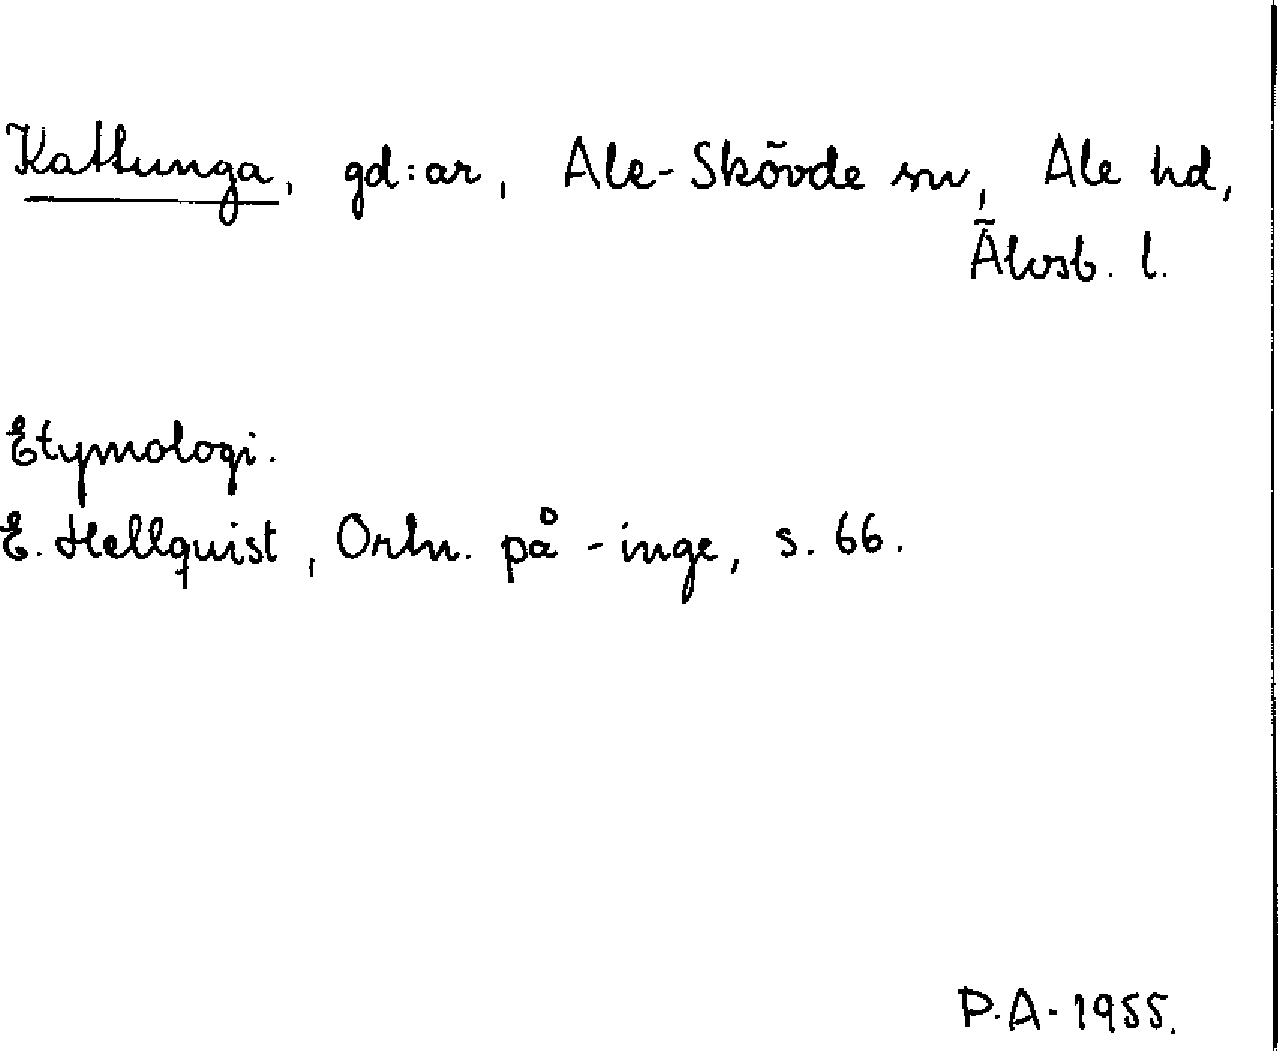 Kattunga, gd:ar, Ale-Skövde sn, Ale hd,
Älvsb. l.
Etymologi.
E. Hellquist, Ortn. på -inge, s. 66.
P.A. 1955.